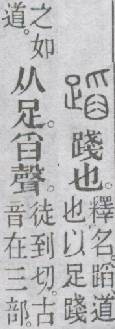 蹈踐也。釋名。蹈、道
也以足踐
之如
道。
从足。舀聲。徒到切。古
音在三部。